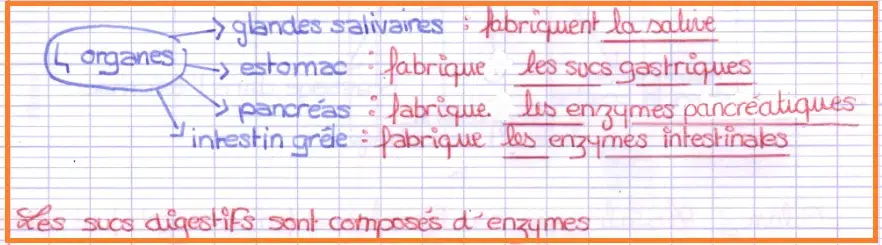 glandes salivaires : fabriquent la salive
4 organes
estomac : fabrique les sucs gastriques
pancréas : fabrique les enzymes pancréatiques
intestin grêle : fabrique les enzymes intestinales
Les sucs digestifs sont composés d'enzymes